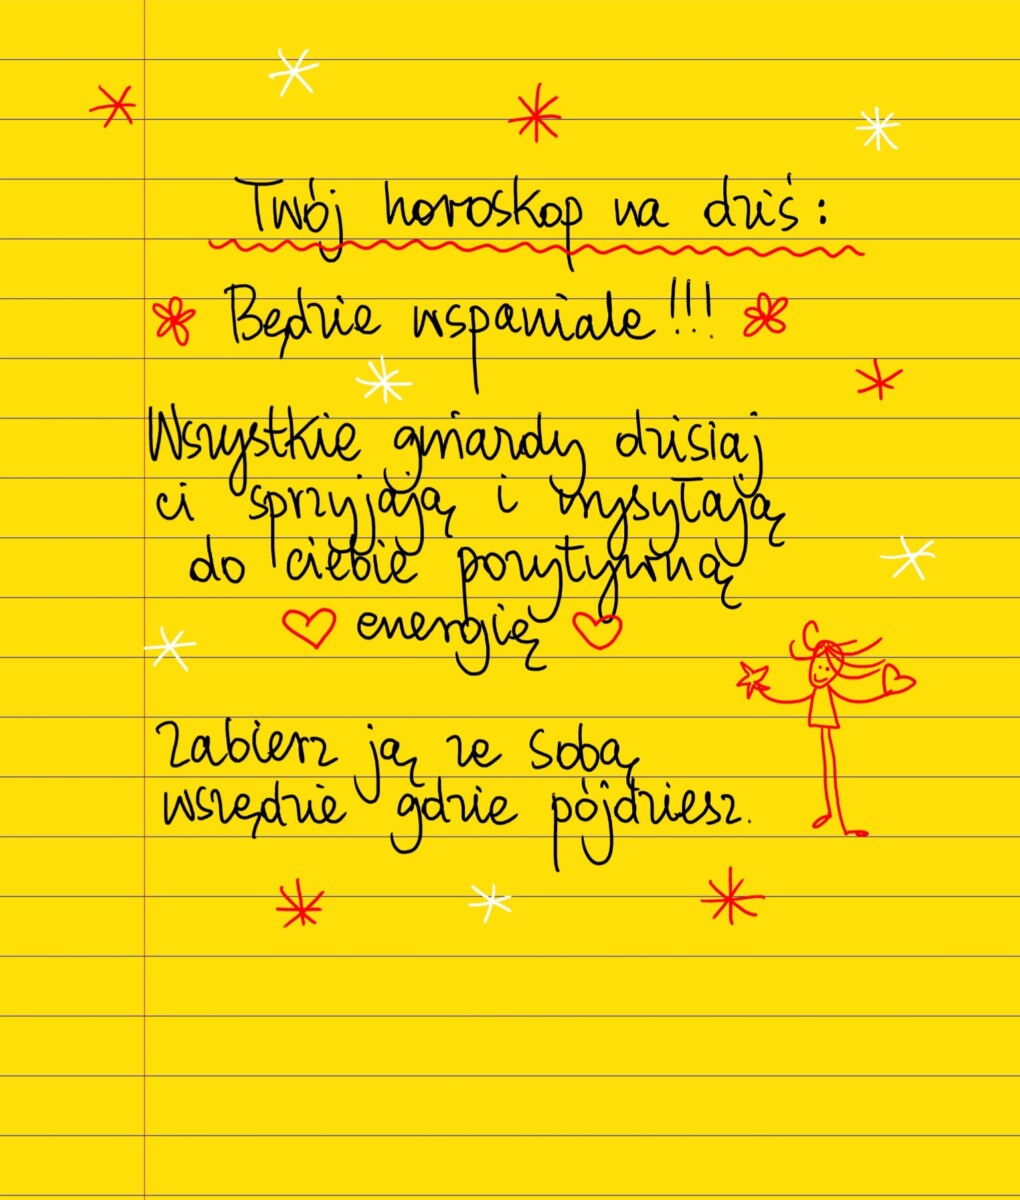 Twój horoskop na dziś:
Będzie wspaniale!!!
Wszystkie gwiazdy dzisiaj
ci sprzyjają i wysyłają
do ciebie pozytywną
energię
Zabierz ją ze sobą
wszędzie gdzie pójdziesz.